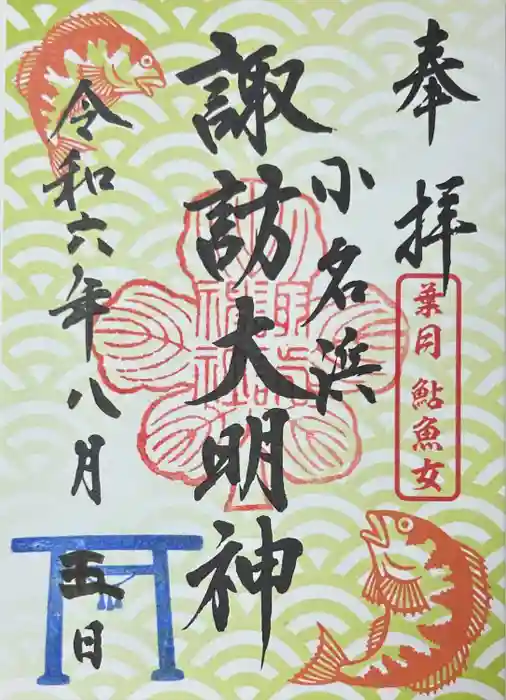 奉拝
葉月 鮎魚女
小名浜
諏訪大明神
諏訪神社
令和六年八月
五日